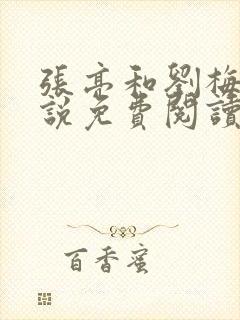 張亮和劉梅
說免費閱讀
百香蜜